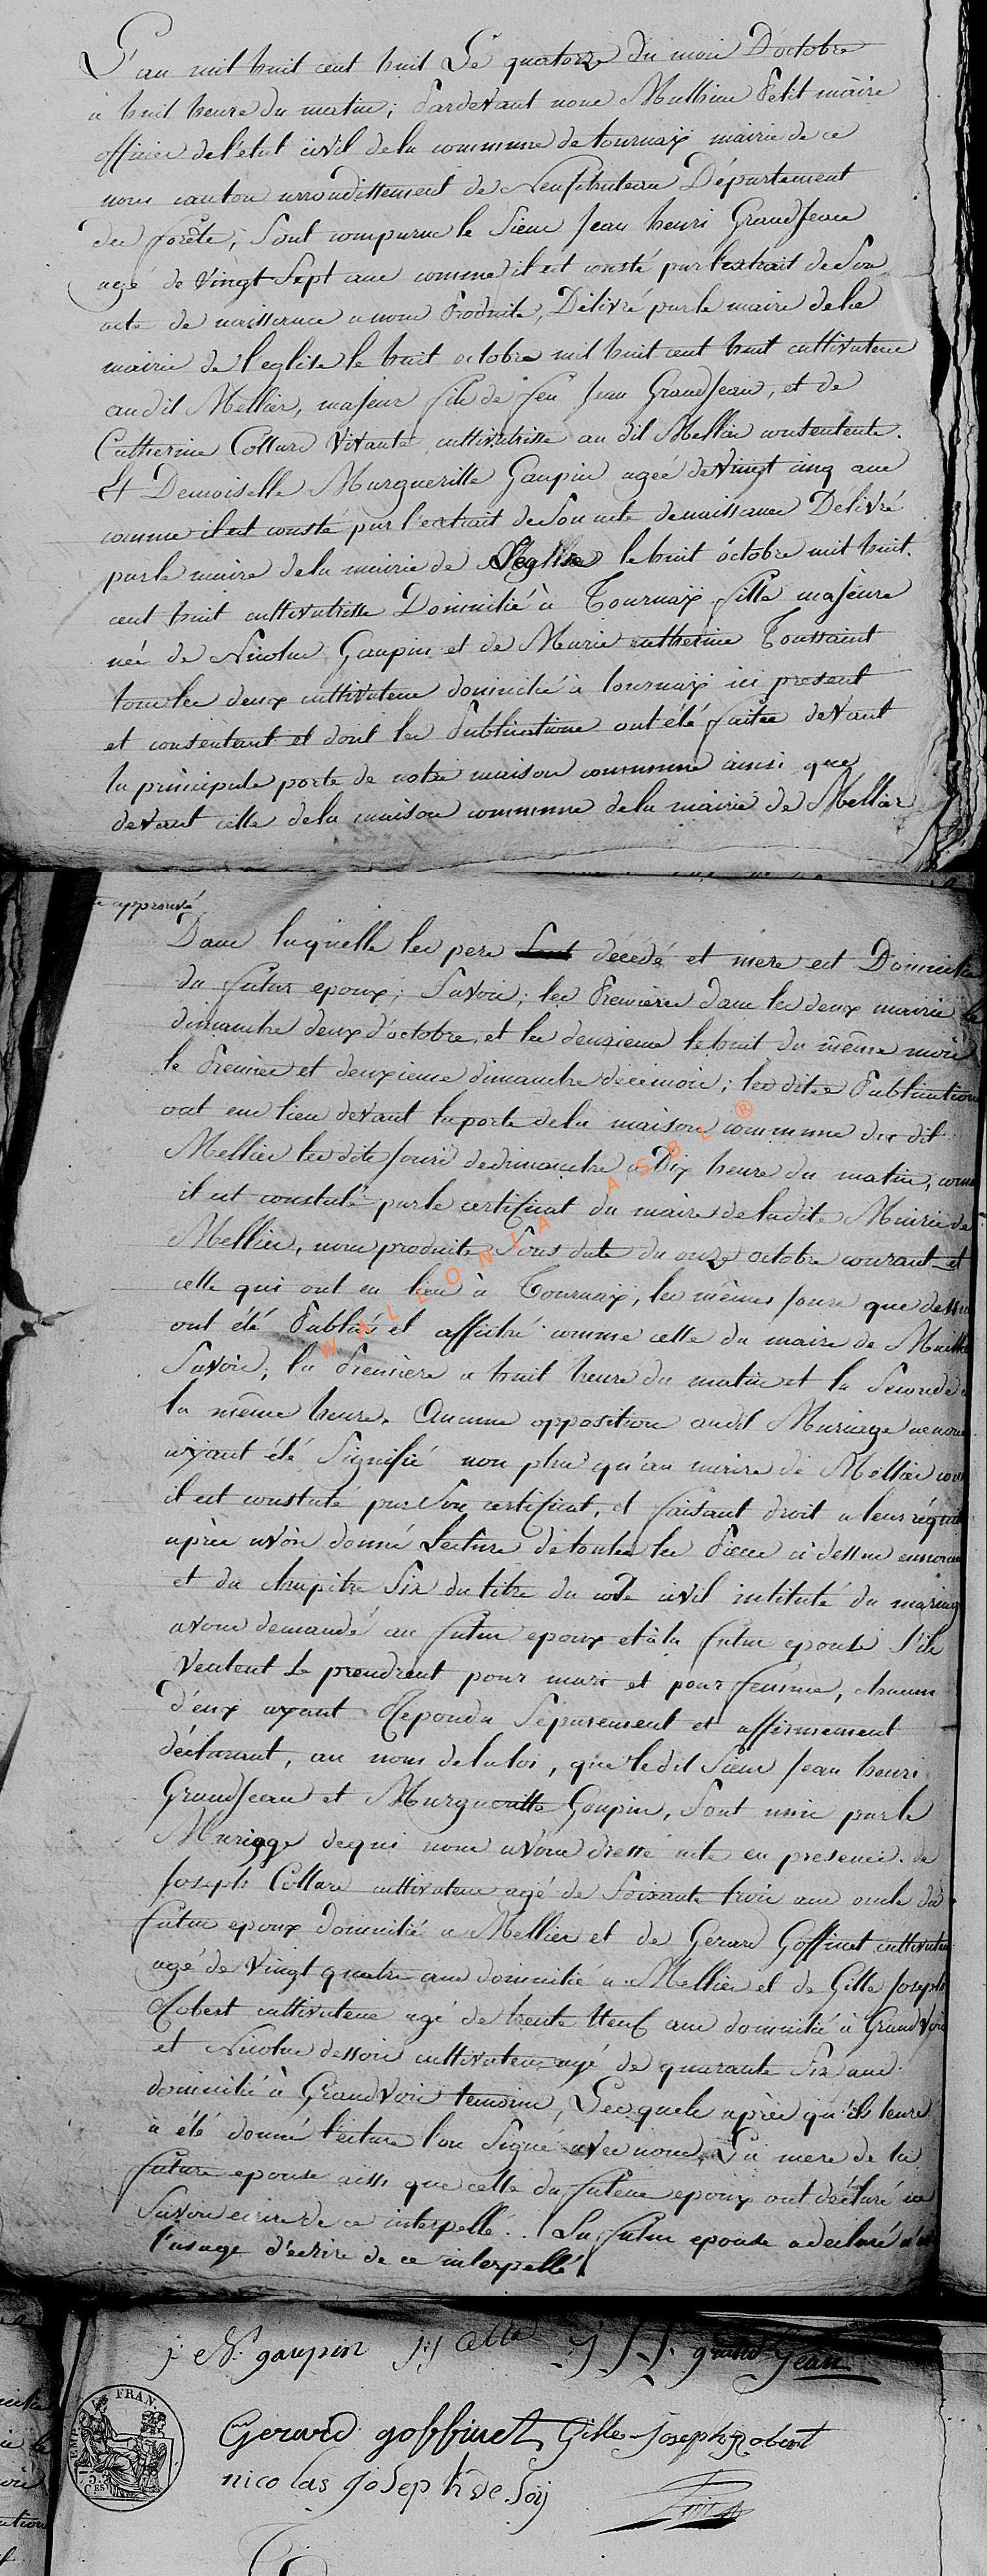 L'an mil huit cent huit Le quatorze du mois D'octobre
a huit heure du matin; Pardevant nous Mathieu Petit maire
officier de l'état civil de la commune de tournaÿ mairie de ce
nom canton arrondissement de Neufchateau Département
des forêts; Sont comparue le Sieur Jean henri GrandJean
agé de Vingt Sept ans comme il est consté par l'extrait de Son
acte de naissance a nous Produite, Délivré par le maire de la
mairie de l'eglise le huit octobre mil huit cent huit cultivateur
au dit Mellier, majeur fils de feu Jean GrandJean, et de
Catherine Collard Vivante cultivatrisse au dit Mellier consentente.
Et Demoiselle Margueritte Gaupin agée de vingt cinq ans
comme il est consté par l'extrait de Son acte de naissance Delivré
par le maire de la mairie de L'eglise le huit octobre mil huit
cent huit cultivatrisse Domicilié à Tournaÿ fille majeure
née de Nicolas Gaupin et de Marie catherine Toussaint
tous les deux cultivateur domicilié à tournaÿ ici present
et consentent et dont les Publications ont été faites devant
la principale porte de notre maison commune ainsi que
devant celle de la maison commune de la mairie de Mellier
approuvé
Dans laquelle les pere décédé et mere est Domicilié
du futur epoux; Savoir; les Premiere dans les deux mairie le
dimanche deux d'octobre, et les deuxieme le huit du même mois
le Premier et deuxieme dimanche de ce mois; les dites Publication
ont eu lieu devant la porte de la maison commune du dit
Mellier les dits Jours de dimanche a Dix heure du matin, comme
il est constaté par le certificat du maire de la dite Mairie de
Mellier, nous produite Sous date du onze octobre courant et
celle qui ont eu lieu à Tournaÿ, les mêmes Jours que dessus
ont été Publié et affiché comme celle du maire de Mellier
Savoir; la Premiere a huit heure du matin et la Seconde a
la même heure. Aucune opposition audit Mariage ne nous
aÿant été Signifié non plus qu'au maire de Mellier com
il est constaté par Son certificat, et faisant droit a leur réquis
après avoir donné Lecture de toutes les Pieces ci dessus
et du chapitre Six du titre du code civil intitulé du mariage
avons demandé au futur epoux et à la futur epouse S'ils
Veulent se prendrent pour mari et pour femme, chacun
d'eux ayant Repondu Séparement et affirmement
déclarant, au nom de la loi, que le dit Sieur Jean henri
GrandJean et Margueritte Gaupin, Sont unie par le
Mariage de qui nous avons dressé acte en presence de
Joseph Collard cultivateur agé de Soixante trois ans oncle du
futur epoux domicilié a Mellier et de Gerard Goffinet cultivateur
agé de Vingt quatre ans domicilié a Mellier et de Gille Joseph
Robert cultivateur agé de trente Neuf ans domicilié à GrandVoir
et Nicolas dessoie cultivateur agé de quarante Six ans
domicilié à GrandVoir temoins, Lesquels après qu'ils leurs
a été donné lecture l'on Signé avec nous, La mere de la
future epouse aissi que celle du futeur epoux ont declaré ne
Savoir ecrire de ce interpellé.. La futur epouse a declaré
l'usage d'ecrire de ce interpellé
N. gaupin J: J Colla J, H, grand Jean
Gerard goffinet, Gille Joseph Robert
nicolas Joseph de Soÿ
FRAN.
WALLONIA ASBL ®